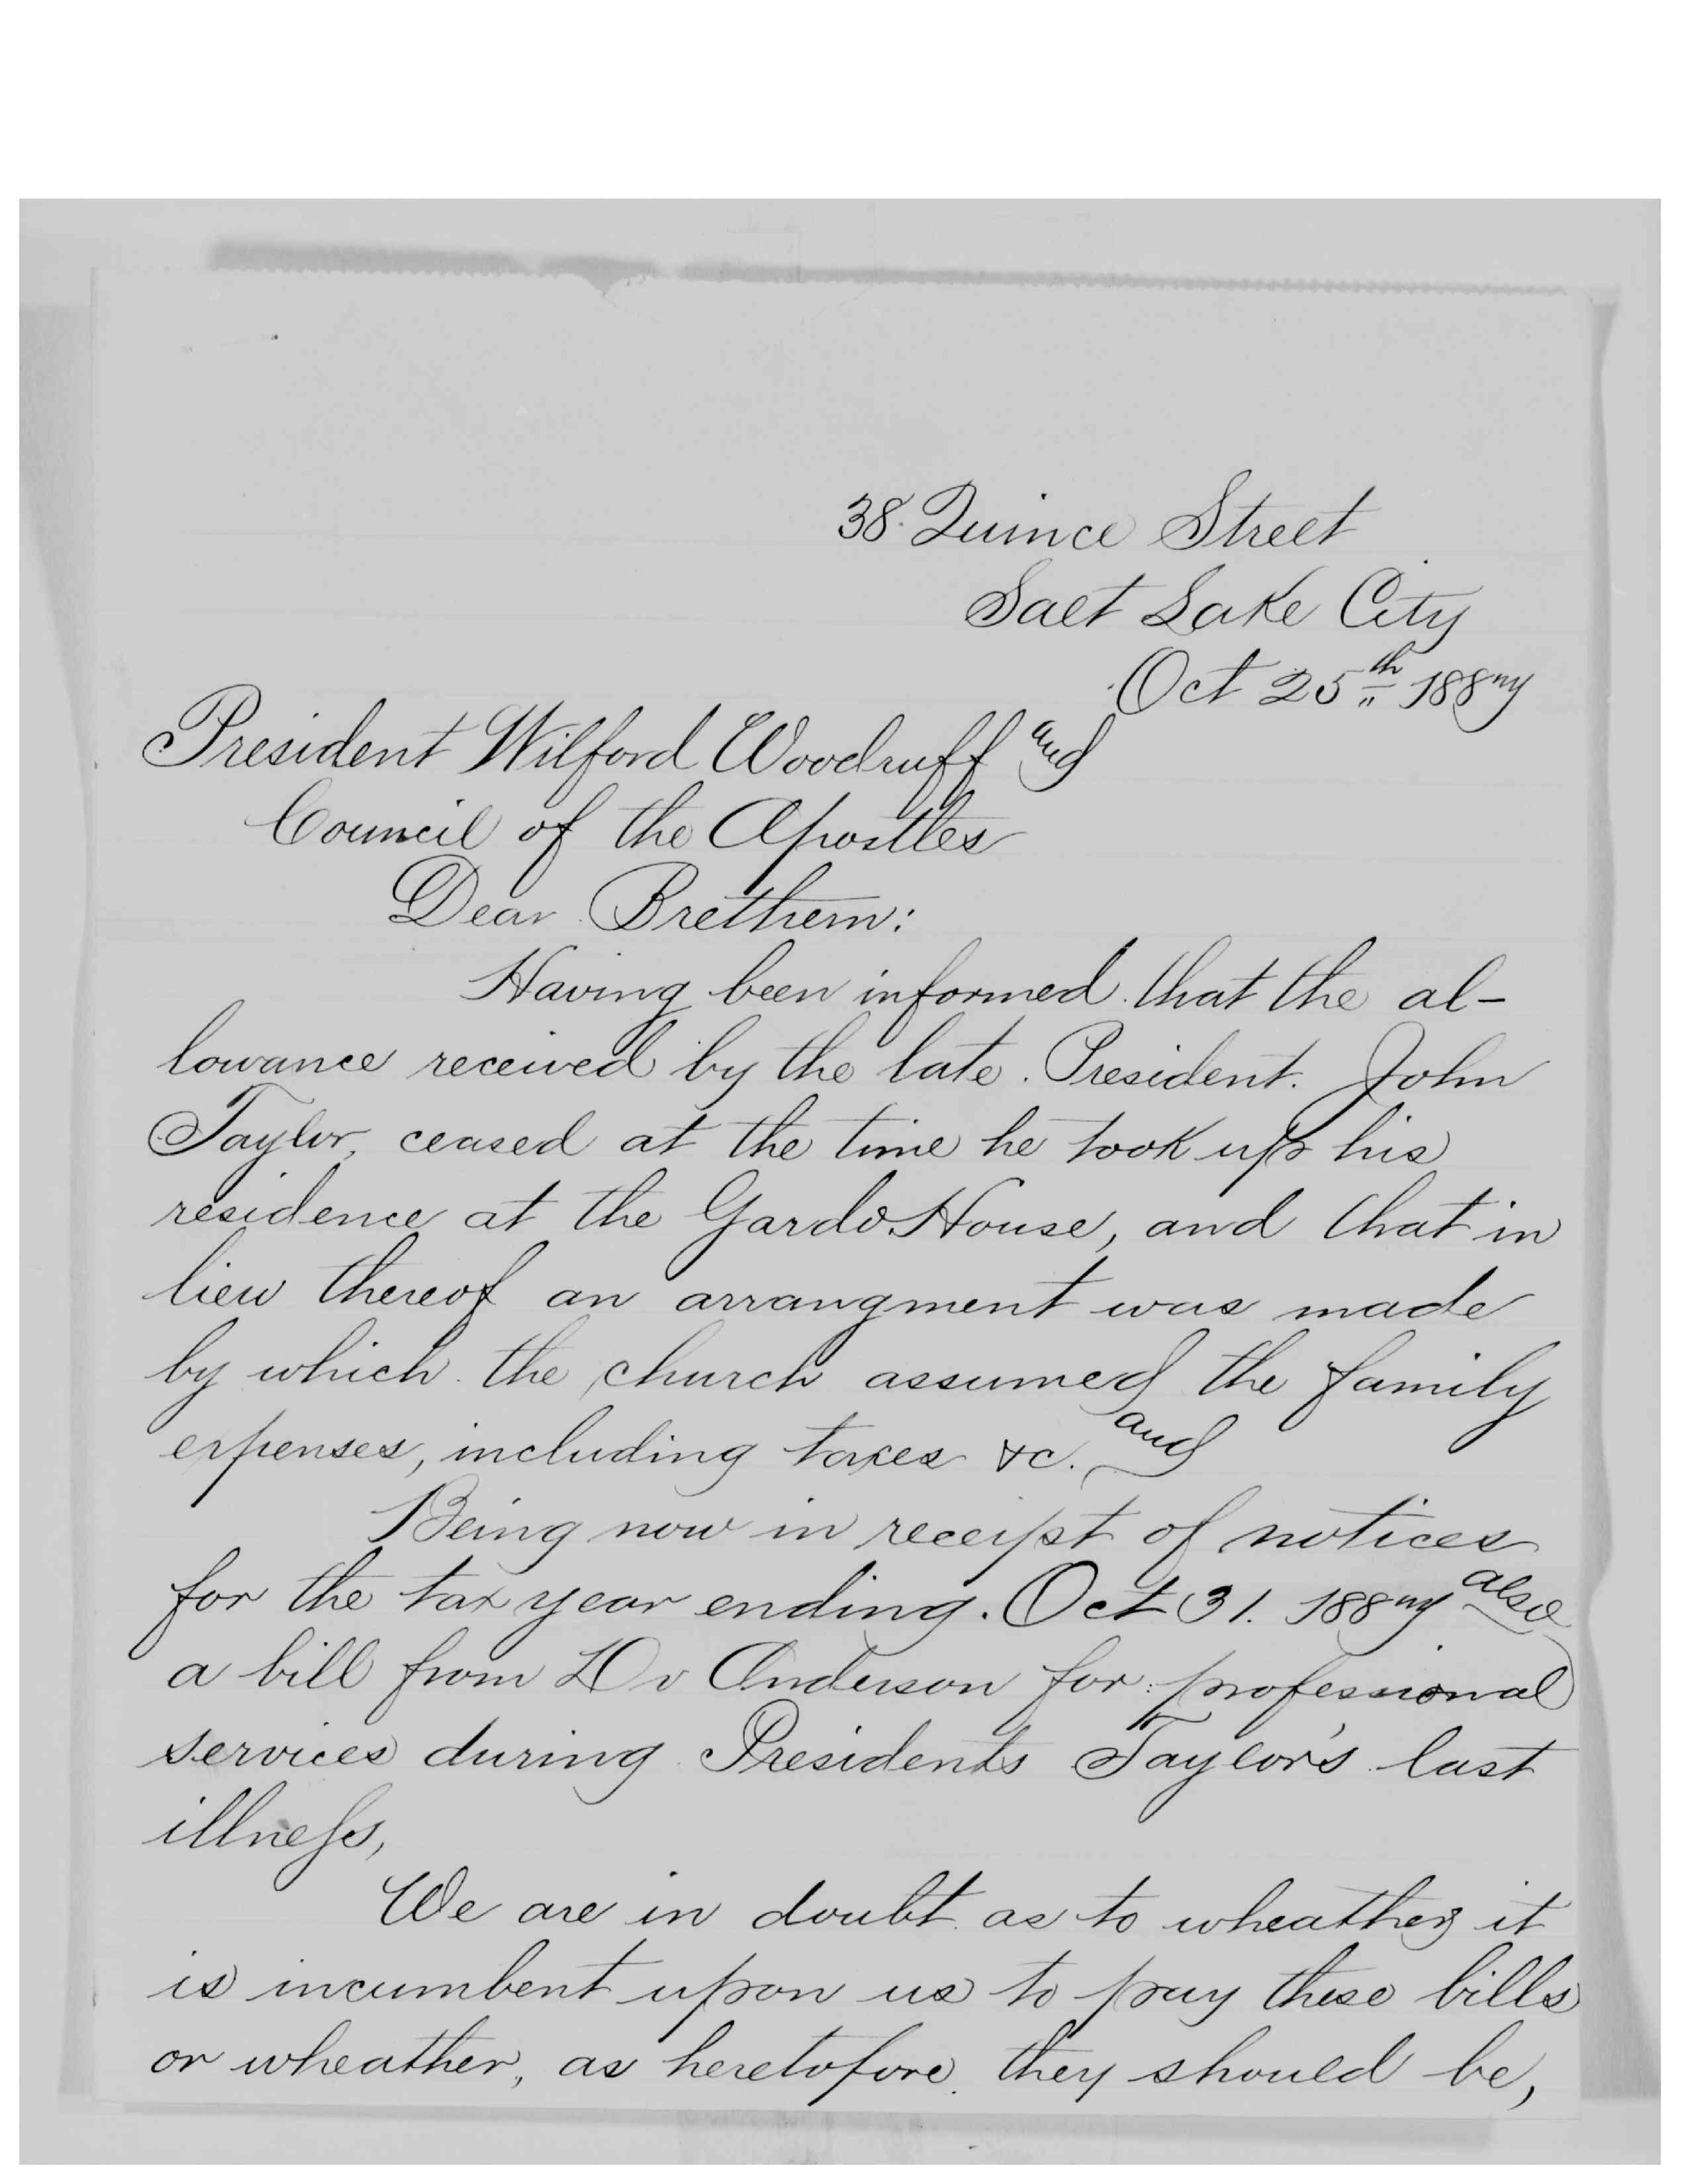 38. Quince Street
Salt Lake City
Oct 25th 1887
President Wilford Woodruff and
Council of the Apostles
Dear Brethern:
Having been informed that the al-
lowance received by the late. President. John
Taylor, ceased at the time he took up his
residence at the Gardo House, and that in
lieu thereof an arrangment was made
by which the church assumed the family
expenses, including taxes &c. and
Being now in receipt of notices
for the tax year ending. Oct 31. 1887 also
a bill from Dr Anderson for professional
services during Presidents Taylor's last
illness,
We are in doubt as to wheather it
is incumbent upon us to pay these bills
or wheather, as heretofore, they should be,